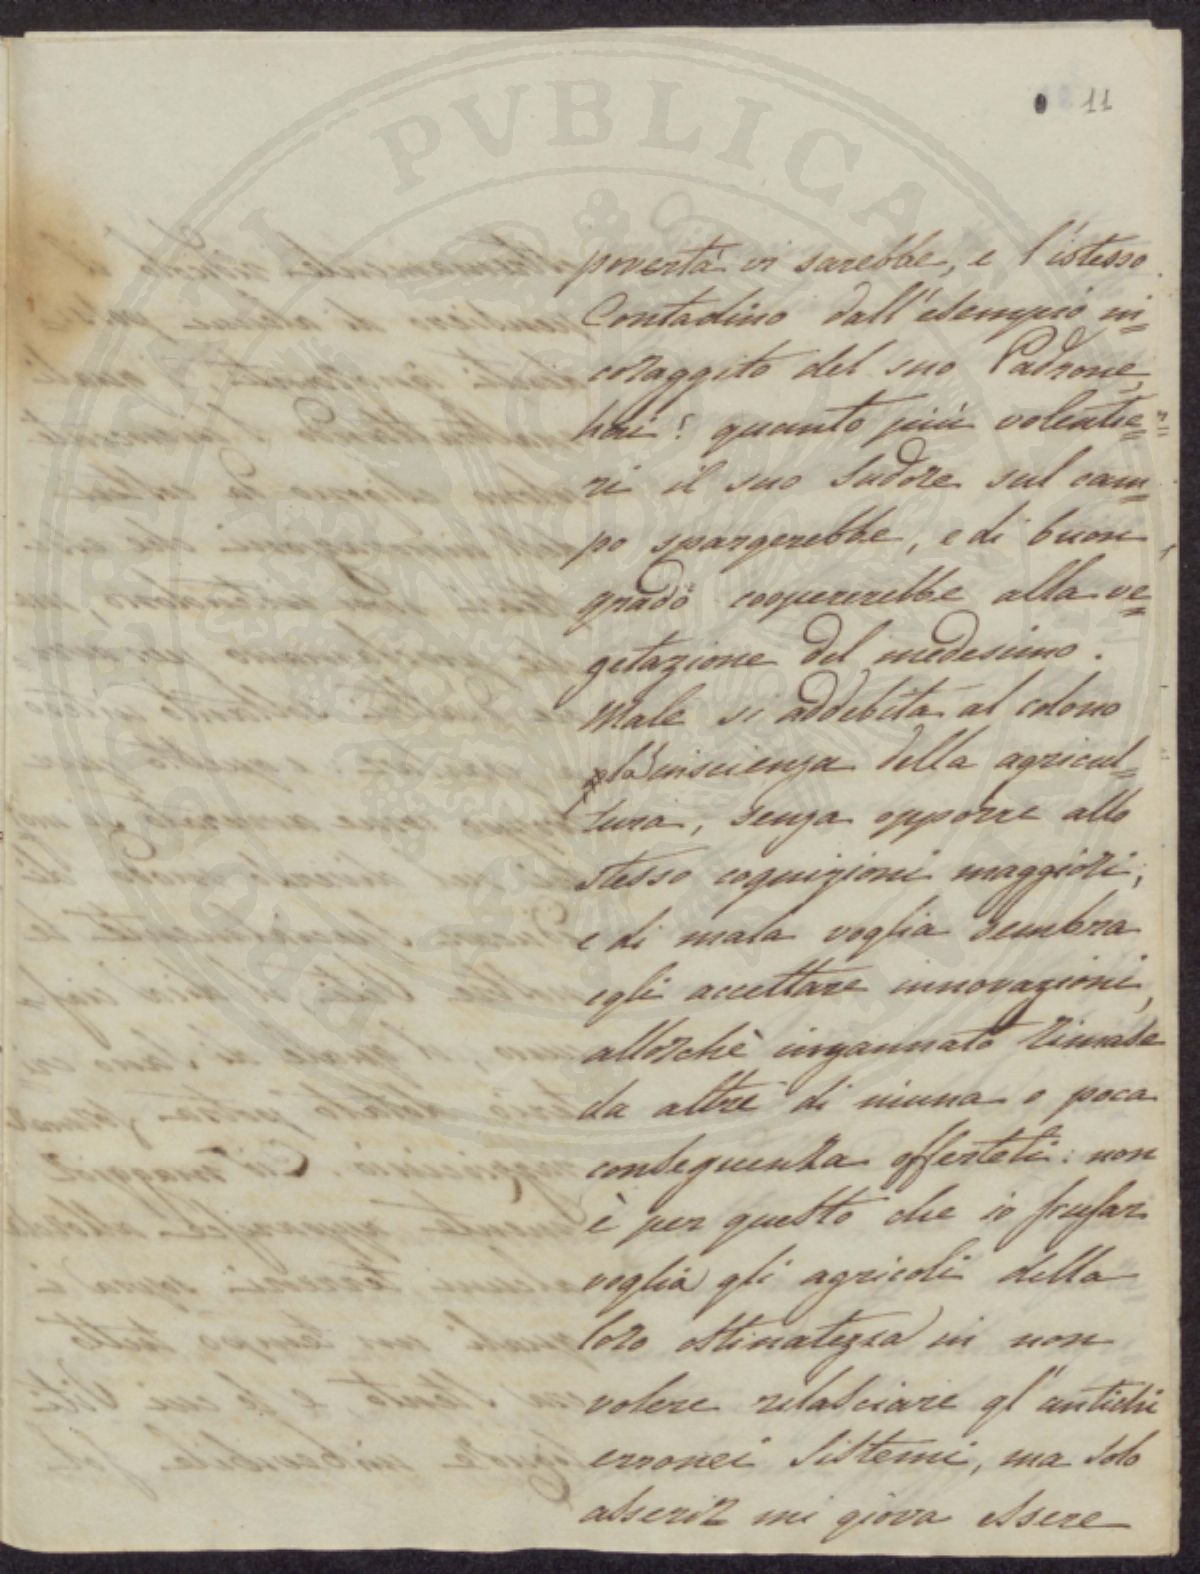 11
povertà vi sarebbe, e l'istesso
Contadino dall'esempio in=
coraggito del suo Padrone,
hoi! quanto più volentie=
ri il suo sudore sul cam=
po spargerebbe, e di buon
grado coopererebbe alla ve=
getazione del medesimo.
Male si addebita al colono
la inscienza della agricul=
tura, senza opporre allo
stesso cognizioni maggiori,
e di mala voglia sembra
egli accettare innovazioni,
allorchè ingannato rimase
da altre di niuna o poca
conseguenza offerteli: non
è per questo che io
voglia gli agricoli della
loro ostinatezza in non
volere rilasciare gl'antichi
erronei sistemi, ma solo
asserir mi giova essere
PVBLICA